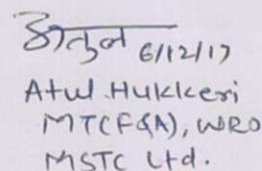 अतुल 6/12/17
Atul Hukkeri
MTC(F&A), WRO
MSTC Ltd.